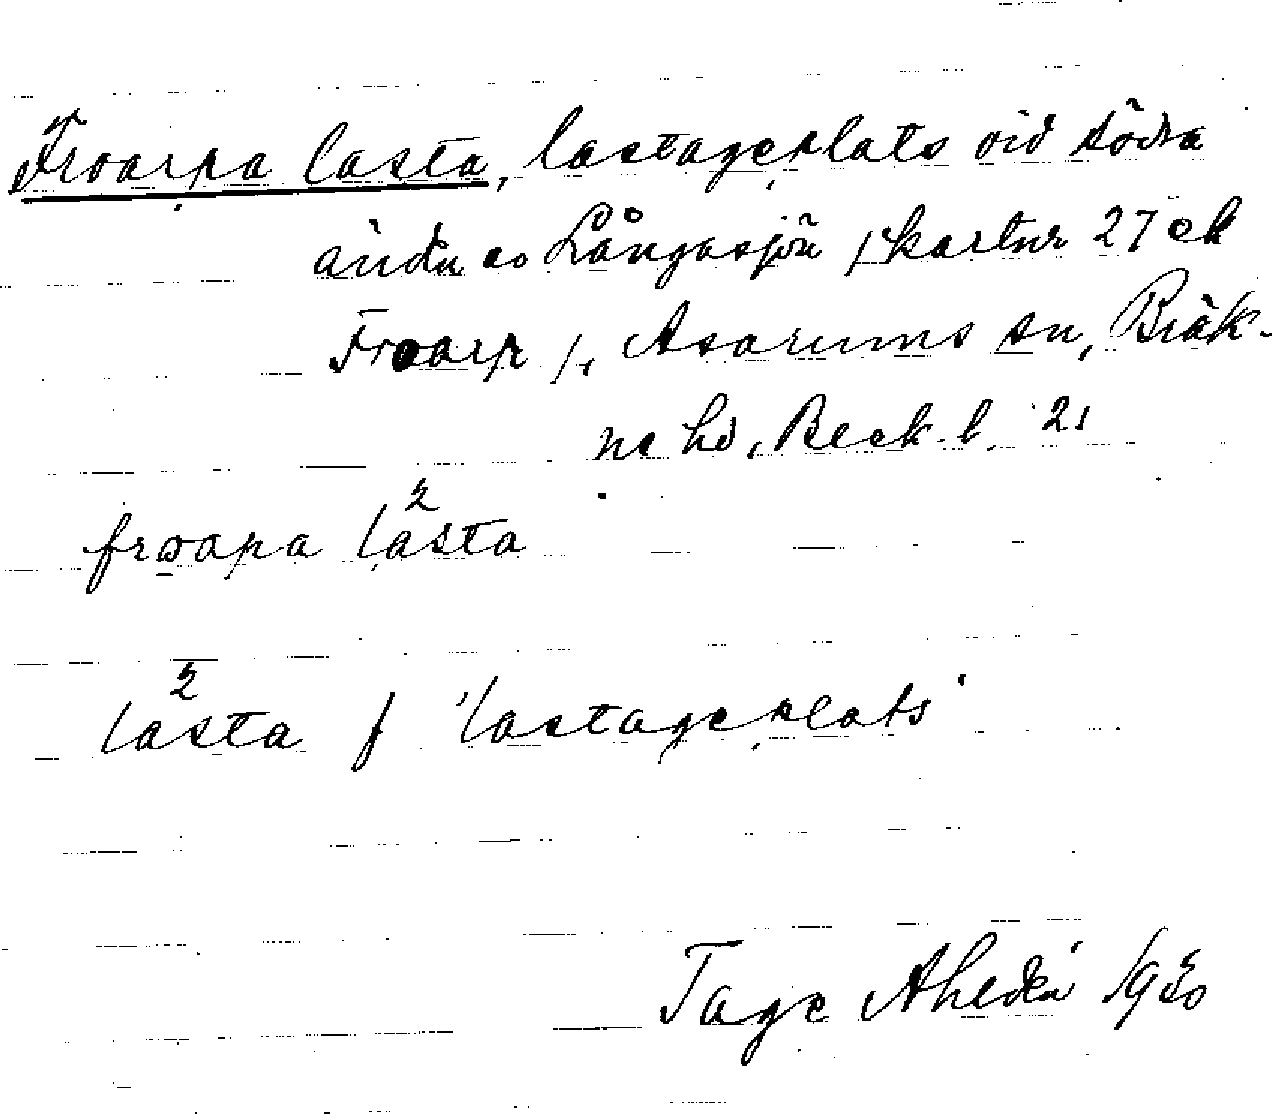 Froarpa lasta, lastageplats vid södra
ändan av Långasjön /kartur 27 ek
Froarp/, Asarums sn, Bräk-
ne hd, Blek. l. 21
froapa lasta
lasta f 'lastageplats'
Tage Ahldén 1930